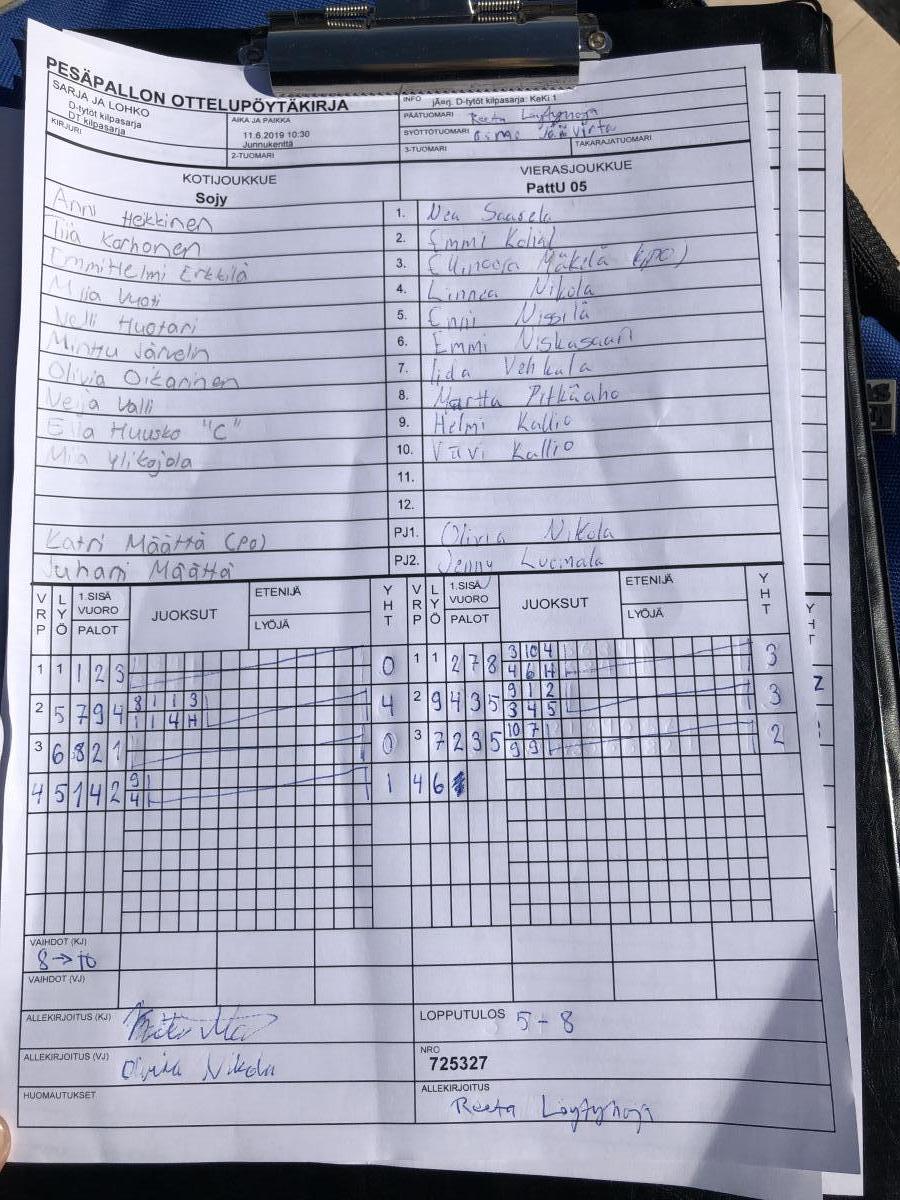 PESÄPALLON OTTELUPÖYTÄKIRJA
SARJA JA LOHKO
D-tytöt kilpasarja
DT kilpasarja
KIRJURI
AIKA JA PAIKKA
11.6.2019 10:30
Junnukenttä
2-TUOMARI
INFO jÄerj. D-tytöt kilpasarja: KeKi 1
PÄÄTUOMARI Reeta Löytynoja
SYÖTTÖTUOMARI
3-TUOMARI TAKARAJATUOMARI
KOTIJOUKKUE VIERASJOUKKUE
Sojy PattU 05
Anni Heikkinen 1. Nea Saarela
Tiia Korhonen 2. Emmi
EmmiHelmi Erkkilä 3. Ellinoora Mäkelä (PO)
Vuoti 4. Linnea Nikola
Nelli Huotari 5. Enni Nissilä
Minttu Järvelin 6. Emmi Niskasaari
Olivia Oikarinen 7. Iida Vehkala
Neija Valli 8. Martta Pitkäaho
Ella Huusko "C" 9. Helmi Kallio
Mia Ylikojola 10. Kallio
11.
12.
Katri Määttä (PO) PJ1. Olivia Nikola
Juhani Määttä PJ2. Jenny Luomala
VRP LYÖ 1.SISÄ VUORO PALOT JUOKSUT ETENIJÄ LYÖJÄ YHT VRP LYÖ 1.SISÄ VUORO PALOT JUOKSUT ETENIJÄ LYÖJÄ YHT
3 10 4
1 1 1 2 3 0 1 1 2 7 8 4 6 H 3
8 1 1 3 9 1 2
2 5 7 9 4 1 1 4 H 4 2 9 4 3 5 3 4 5 3
10 7
3 6 8 2 1 0 3 7 2 3 5 9 9 2
9
4 5 1 4 2 4 1 4 6
VAIHDOT (KJ)
8 → 10
VAIHDOT (VJ)
ALLEKIRJOITUS (KJ) LOPPUTULOS 5 - 8
ALLEKIRJOITUS (VJ) Olivia Nikola NRO
725327
HUOMAUTUKSET ALLEKIRJOITUS
Reeta Löytynoja
YHT
Z